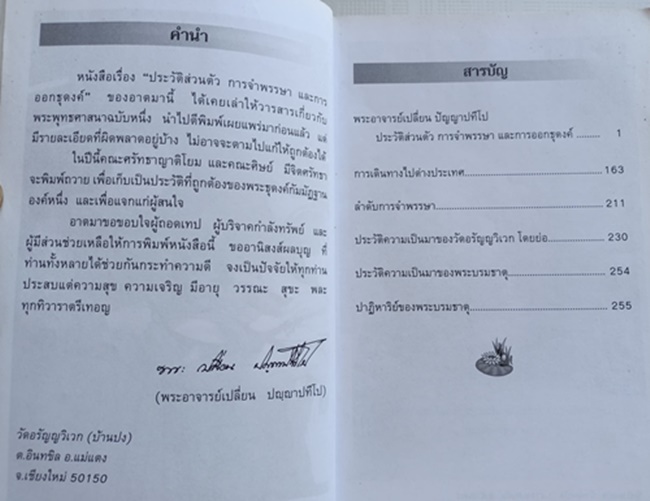 คำนำ
หนังสือเรื่อง "ประวัติส่วนตัว การจำพรรษา และการ
ออกธุดงค์" ของอาตมานี้ ได้เคยเล่าให้วารสารเกี่ยวกับ
พระพุทธศาสนาฉบับหนึ่ง นำไปตีพิมพ์เผยแพร่มาก่อนแล้ว แต่
มีรายละเอียดที่ผิดพลาดอยู่บ้าง ไม่อาจจะตามไปแก้ให้ถูกต้องได้
ในปีนี้คณะศรัทธาญาติโยม และคณะศิษย์ มีจิตศรัทธา
จะพิมพ์ถวาย เพื่อเก็บเป็นประวัติที่ถูกต้องของพระธุดงค์กัมมัฏฐาน
องค์หนึ่ง และเพื่อแจกแก่ผู้สนใจ
อาตมาขอขอบใจผู้ถอดเทป ผู้บริจาคกำลังทรัพย์ และ
ผู้มีส่วนช่วยเหลือให้การพิมพ์หนังสือนี้ ขออานิสงส์ผลบุญ ที่
ท่านทั้งหลายได้ช่วยกันกระทำความดี จงเป็นปัจจัยให้ทุกท่าน
ประสบแต่ความสุข ความเจริญ มีอายุ วรรณะ สุขะ พละ
ทุกทิวาราตรีเทอญ
เปลี่ยน ปญฺญาปทีโป
(พระอาจารย์เปลี่ยน ปญฺญาปทีโป)
วัดอรัญญวิเวก (บ้านปง)
ต.อินทขิล อ.แม่แตง
จ.เชียงใหม่ 50150
สารบัญ
พระอาจารย์เปลี่ยน ปัญญาปทีโป
ประวัติส่วนตัว การจำพรรษา และการออกธุดงค์ ......... 1
การเดินทางไปต่างประเทศ ......... 163
ลำดับการจำพรรษา ......... 211
ประวัติความเป็นมาของวัดอรัญญวิเวก โดยย่อ ......... 230
ประวัติความเป็นมาของพระบรมธาตุ ......... 254
ปาฏิหาริย์ของพระบรมธาตุ ......... 255